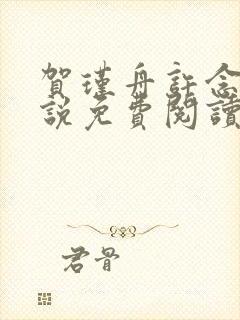 賀瑾舟許念
說免費閱讀
君骨